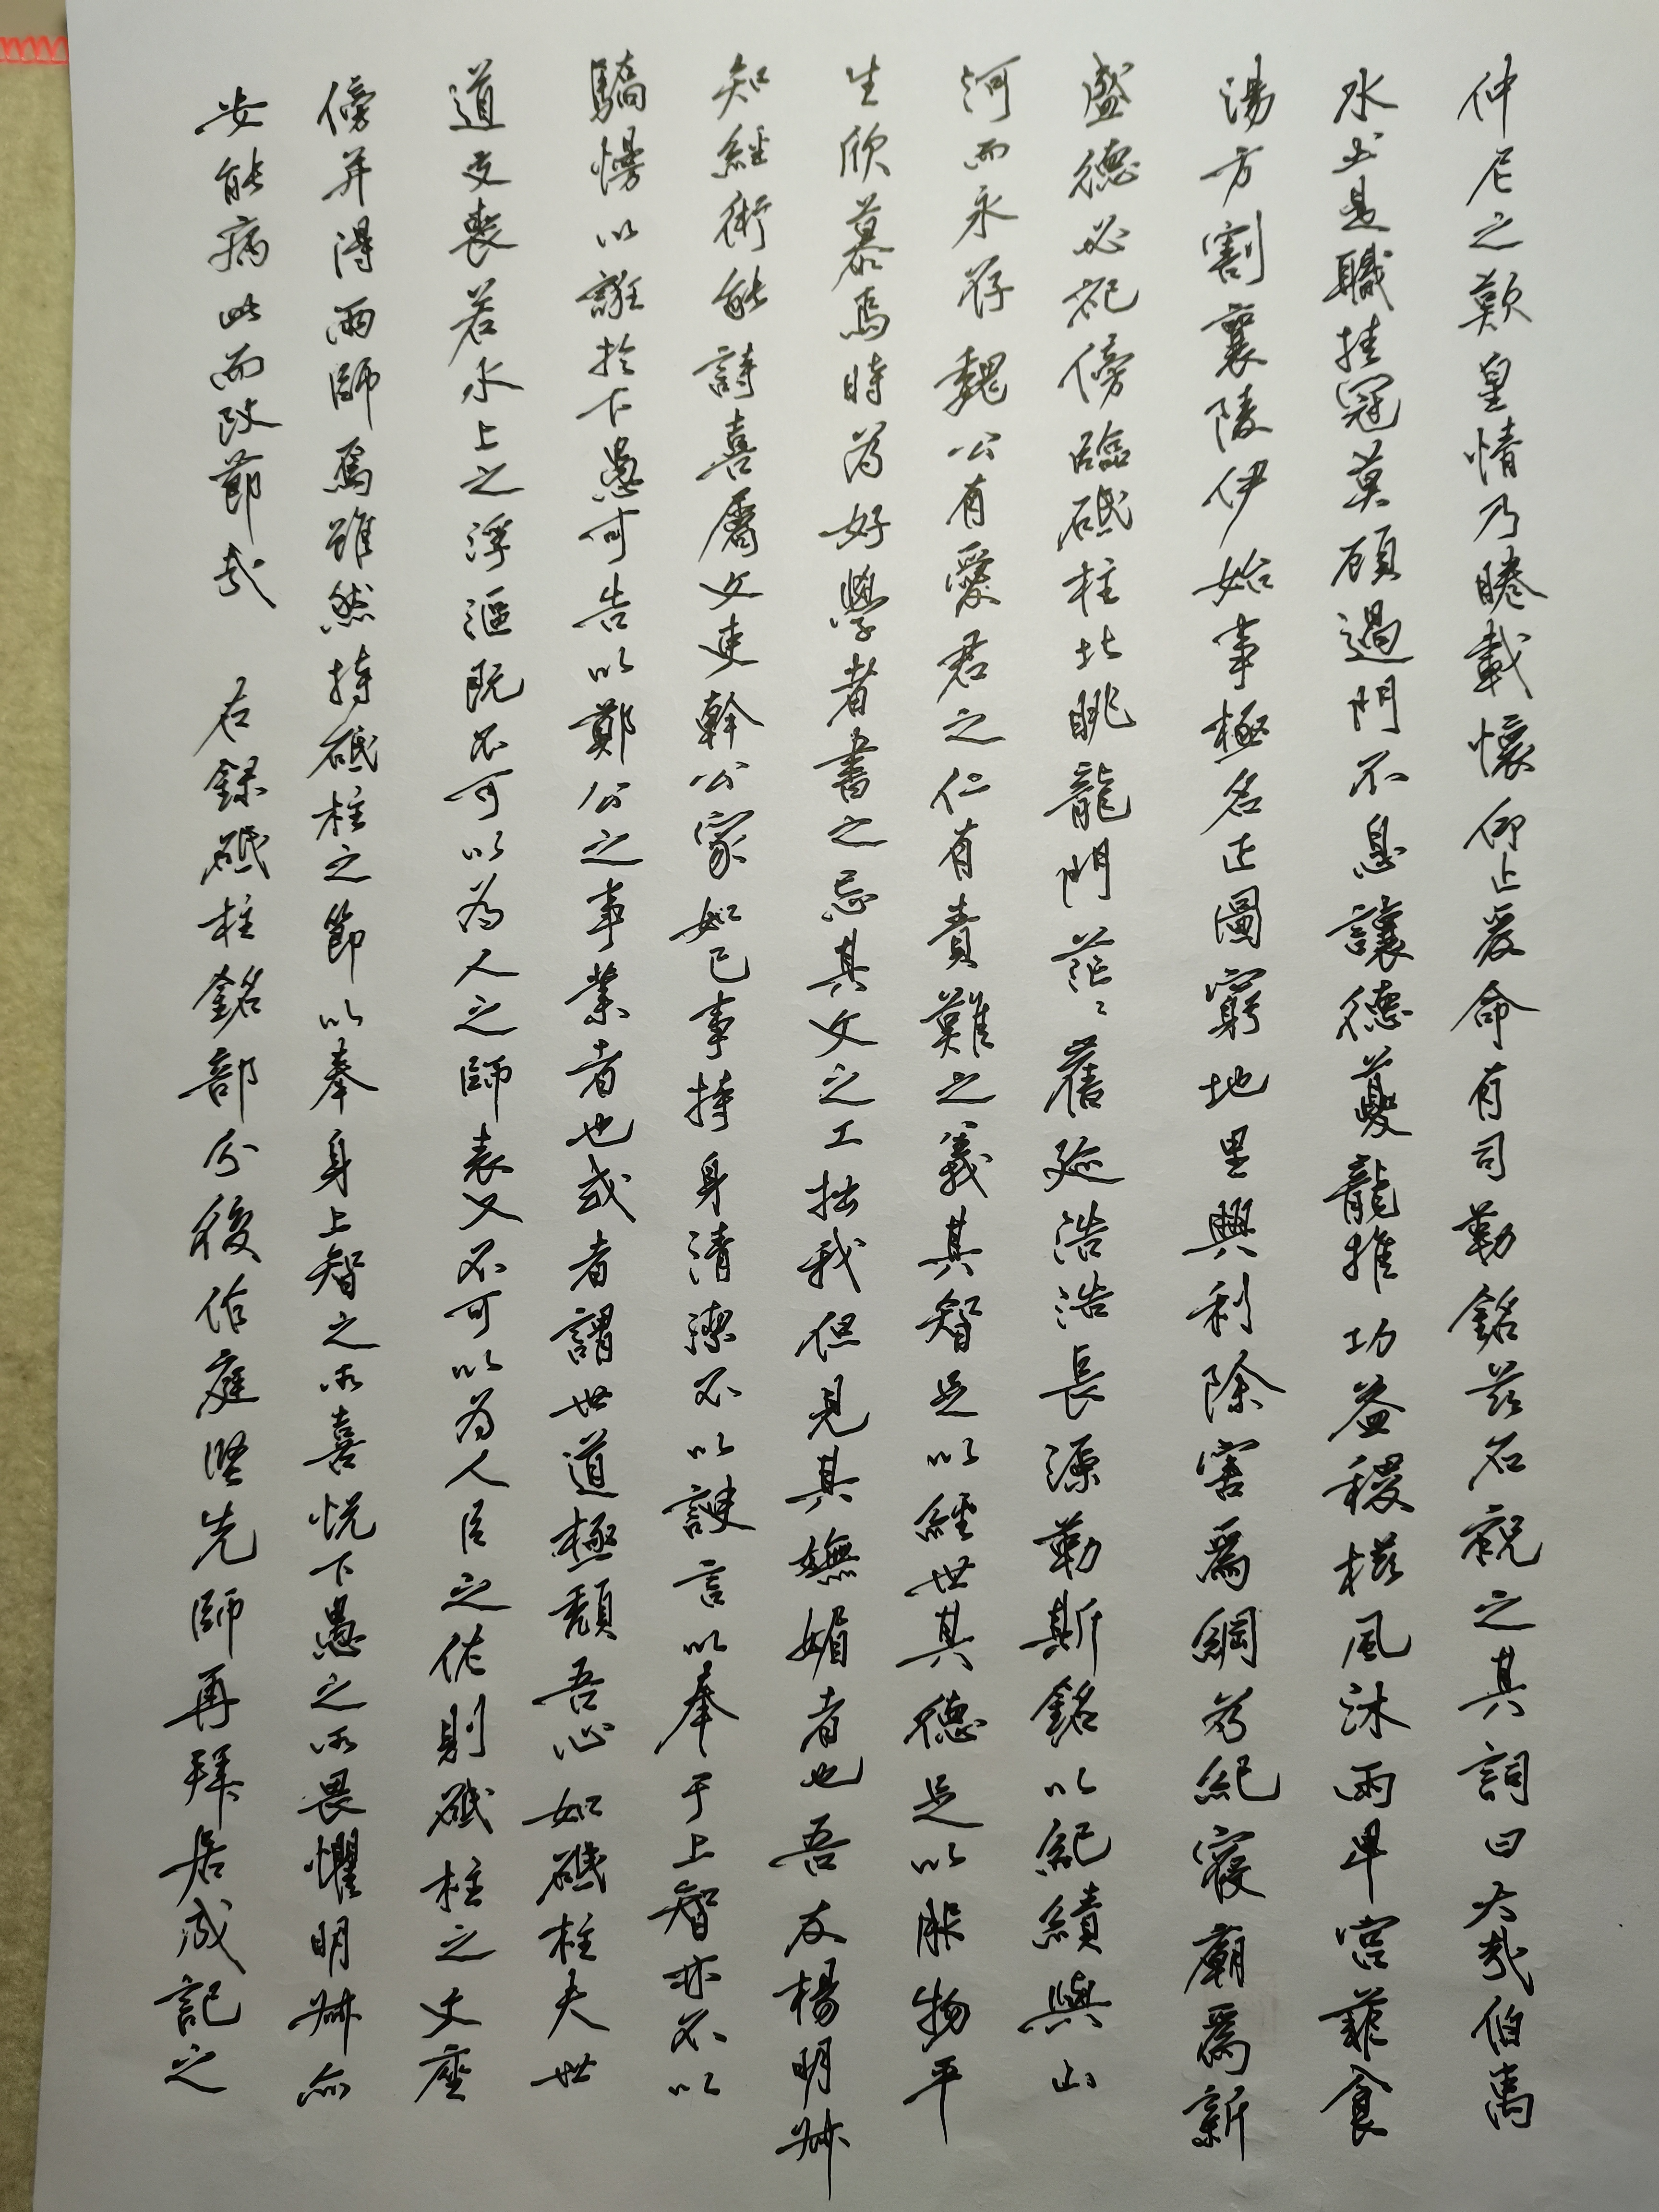 仲尼之歎皇情乃睠載懷仰止爰命有司勒銘兹石祝之其詞曰大哉伯禹
水土是職挂冠莫顧過門不息讓德夔龍推功益稷櫛風沐雨卑宮菲食
湯方割襄陵伊始事極名正圖窮地里興利除害爲綱为紀寢廟爲新
盛德必祀傍臨砥柱北眺龍門茫〻舊迹浩浩長源勒斯銘以紀績與山
河而永存魏公有愛君之仁有責難之義其智足以經世其德足以服物平
生欣慕焉時為好學者書之忘其文之工拙我但見其嫵媚者也吾友楊明叔
知經術能詩喜屬文吏幹公家如己事持身清潔不以諛言以奉于上智亦不以
驕慢以誑於下愚可告以鄭公之事業者也或者謂世道極頹吾心如砥柱夫世
道交喪若水上之浮漚既不可以為人之師表又不可以為人臣之佐則砥柱之文座
傍并得兩師焉雖然持砥柱之節以奉身上智之所喜悅下愚之所畏懼明叔亦
安能病此而改節哉　右録砥柱銘部分後作庭堅先師再拜居成記之